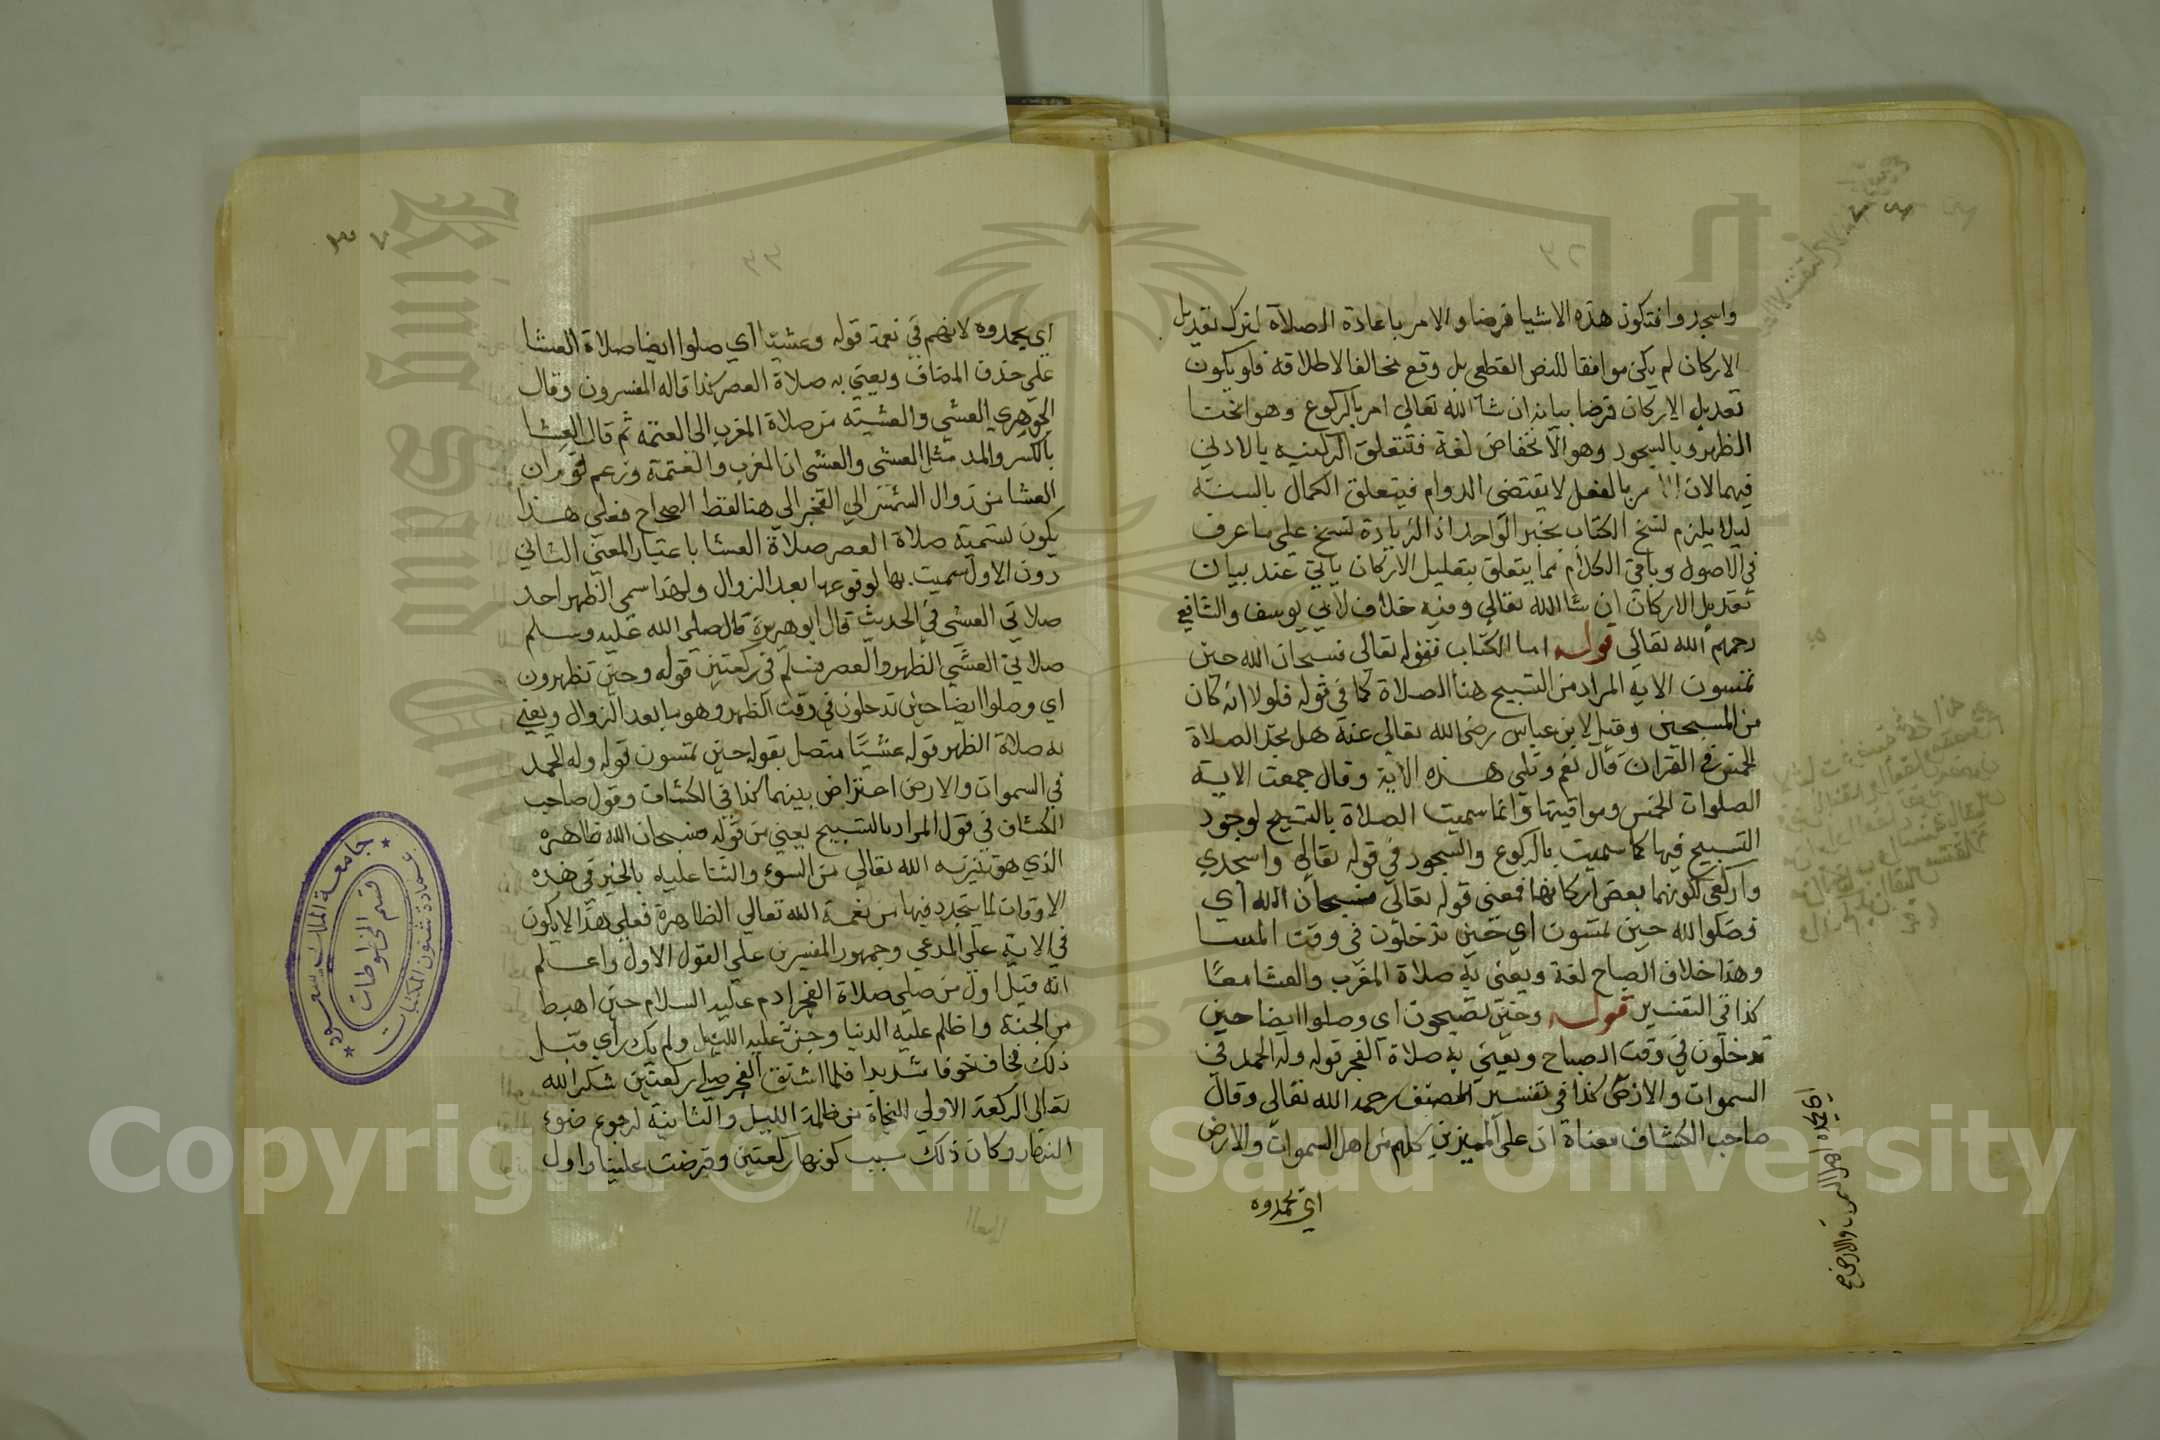 واسجدوا فتكون هذه الاشيا فرضا والامر باعادة الصلاة لترك تعديل
الاركان لم يكن موافقا للنص القطعى بل وقع مخالفا لاطلاقه فلو يكون
تعديل الاركان فرضا بيانه ان شآ الله تعالى امر بالركوع وهو انحنا
الظهر وبالسجود وهو الانخفاض لغة فتتعلق الركنيه بالادنى
فيهما لان الامر بالفعل لا يقتضى الدوام فيتعلق الكمال بالسنة
ليلا يلزم نسخ الكتاب بخبر الواحد اذ الزيادة نسخ على ما عرف
فى الاصول وباقى الكلام مما يتعلق بتعليل الاركان ياتى عند بيان
تعديل الاركان ان شا الله تعالى وفيه خلاف لابى يوسف والشافعي
رحمهم الله تعالى قوله اما الكتاب فقوله تعالى فسبحان الله حين
تمسون الايه المراد من التسبيح هنا الصلاة كما فى قوله فلولا انه كان
من المسبحين وقيل لابن عباس رضى الله تعالى عنه هل تجد الصلاة
الخمس فى القران قال نعم وتلى هذه الاية وقال جمعت الاية
الصلوات الخمس ومواقيتها وانما سميت الصلاة بالتسبيح لوجود
التسبيح فيها كما سميت بالركوع والسجود فى قوله تعالى واسجدي
واركعى لكونهما بعض اركانها فمعنى قوله تعالى فسبحان الله اى
فصلوا لله حين تمسون اي حين تدخلون فى وقت المسا
وهذا خلاف الصباح لغة ويعنى به صلاة المغرب والعشا معًا
كذا فى التفسير قوله وحين تصبحون اي وصلوا ايضا حين
تدخلون فى وقت الصباح ويعنى به صلاة الفجر قوله وله الحمد فى
السموات والارض كذا فى تفسير المصنف رحمه الله تعالى وقال
صاحب الكشاف معناه ان على المميزين كلهم من اهل السموات والارض
اى يحمدوه
اى يحمدوه لانهم فى نعمه قوله وعشيا اى صلوا ايضا صلاة العشا
على حذف المضاف ويعنى به صلاة العصر كذا قاله المفسرون وقال
الجوهري العشى والعشية من صلاة المغرب الى العتمه ثم قال العشا
بالكسر والمد مثل العشى والعشى ان المغرب والعتمة وزعم قوم ان
العشا من زوال الشمس الى الفجر الى هنا لفظ الصحاح فعلى هذا
يكون تسمية صلاة العصر صلاة العشا باعتبار المعنى الثانى
دون الاول سميت بها لوقوعها بعد الزوال ولهذا سمى الظهر احد
صلاتى العشى فى الحديث قال ابو هريرة قال صلى الله عليه وسلم
صلاتى العشى الظهر والعصر فسلم فى ركعتين قوله وحين تظهرون
اى وصلوا ايضا حين تدخلون فى وقت الظهر وهو ما بعد الزوال ويعنى
به صلاة الظهر قوله عشيًا متصل بقوله حين تمسون قوله وله الحمد
فى السموات والارض اعتراض بينهما كذا فى الكشاف وقول صاحب
الكشاف فى قول المراد بالتسبيح يعنى من قوله فسبحان الله ظاهره
الذي هو تنزيه الله تعالى من السوء والثنا عليه بالخير فى هذه
الاوقات لما يتجدد فيها من نعمة الله تعالى الظاهرة فعلى هذا لا يكون
فى الاية على المدعى وجمهور المفسرين على القول الاول واعلم
انه قيل اول من صلى صلاة الفجر ادم عليه السلام حين اهبط
من الجنة واظلم عليه الدنيا وجن عليه الليل ولم يك راى قبل
ذلك فخاف خوفا شديدا فلما انشق الفجر صلى ركعتين شكرا لله
تعالى الركعة الاولى النجاة من ظلمة الليل والثانية لرجوع ضوء
النهار وكان ذلك سبب كونها ركعتين وفرضت علينا واول
اى يحمده اهل السموات والارض صح
٣٢
٣٣
٣٧
جامعة الملك سعود
قسم المخطوطات
عمادة شئون المكتبات
King Saud University
1957
Copyright © King Saud University